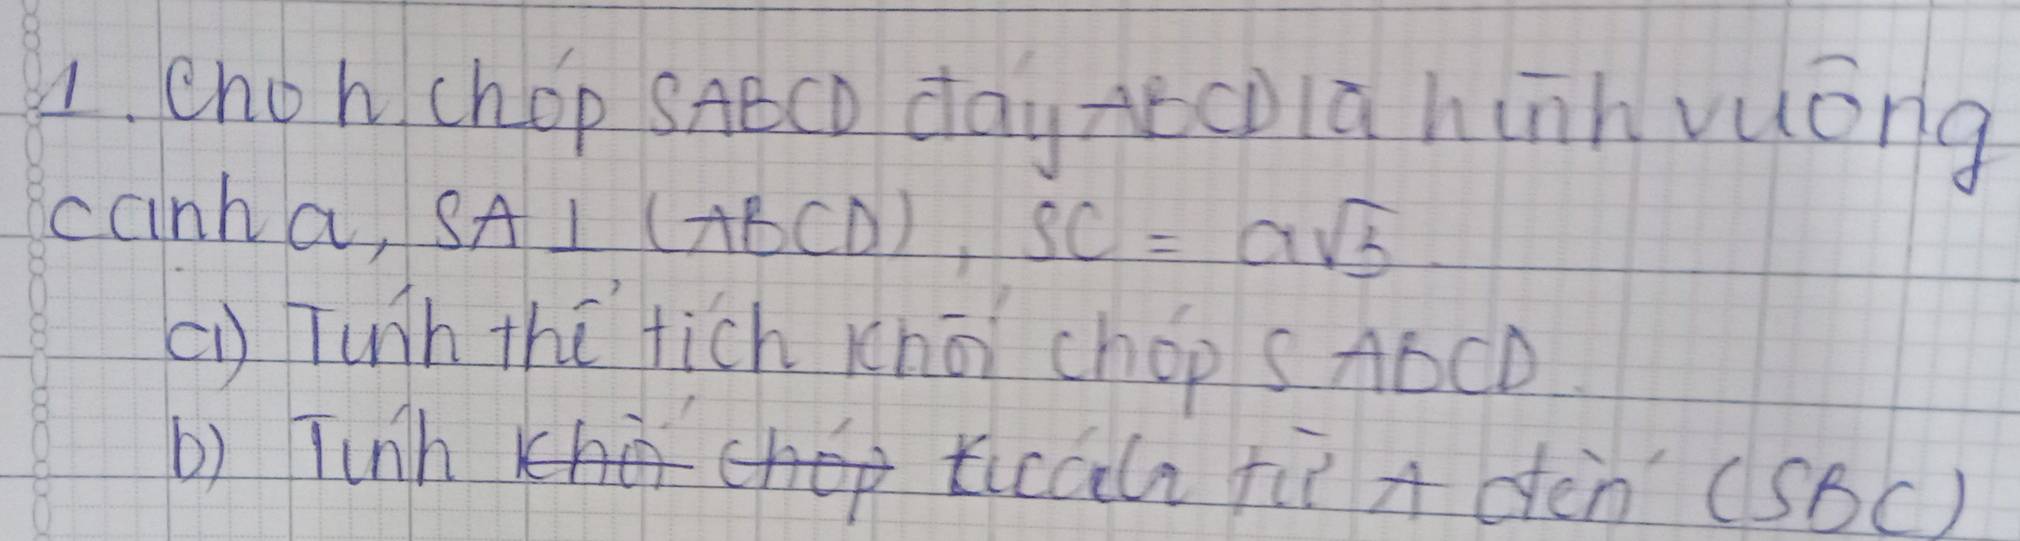 1. Cho h chóp SABCD đáy ABCD là hình vuông
cạnh a, SA ⊥ (ABCD), SC = a√5
a) Tính thể tích khối chóp S ABCD.
b) Tính khối chóp từ A đến (SBC)